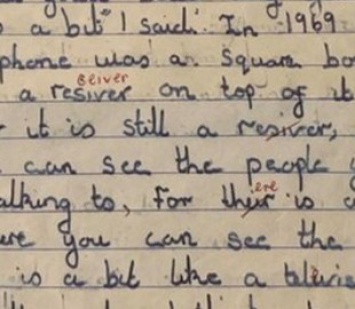 a bit" I said. In 1969
phone was a square bo
ceiver
a resiver on top of it
it is still a resiver,
can see the people
alking to, for their is
ere
ere you can see the
is a bit like a televis